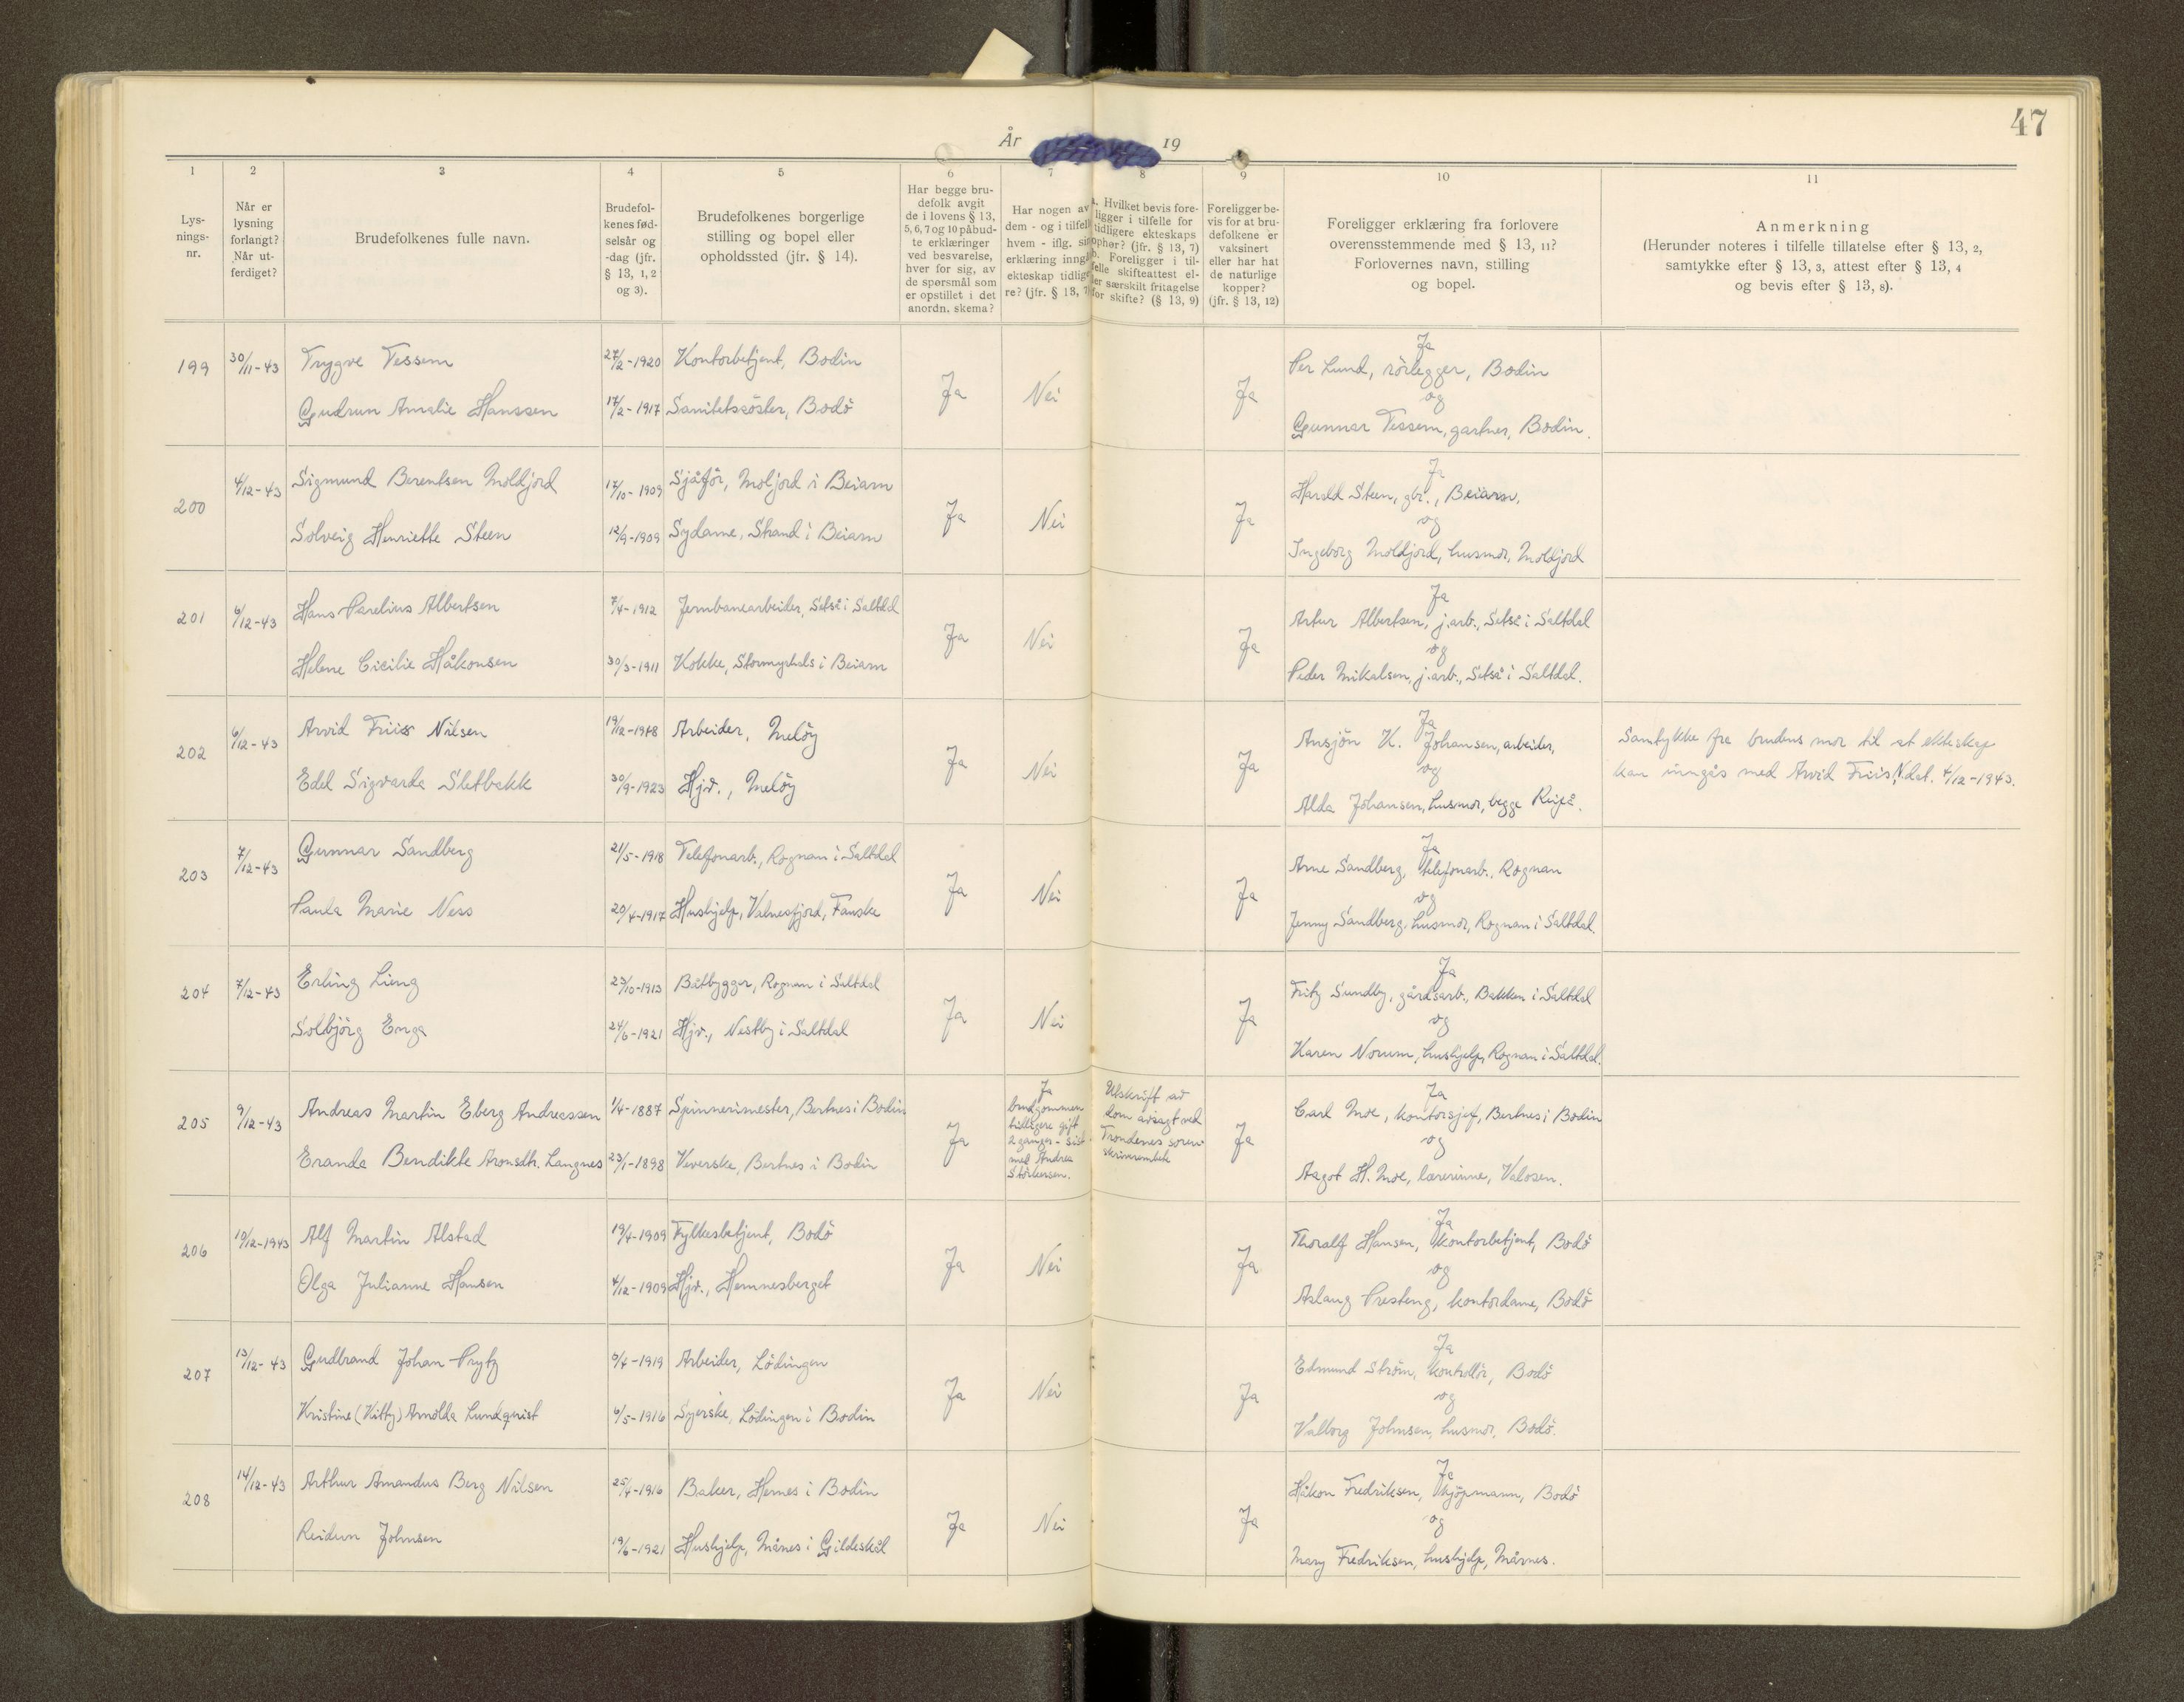 47
År 19
1 2 3 4 5 6 7 8 9 10 11
Lysningsnr.
Når er lysning forlangt? Når utferdiget?
Brudefolkenes fulle navn.
Brudefolkenes fødselsår og -dag (jfr. § 13, 1, 2 og 3).
Brudefolkenes borgerlige stilling og bopel eller opholdssted (jfr. § 14).
Har begge brudefolk avgit de i lovens § 13, 5, 6, 7 og 10 påbudte erklæringer ved besvarelse, hver for sig, av de spørsmål som er opstillet i det anordn. skema?
Har nogen av dem - og i tilfelle hvem - iflg. sin erklæring inngå ekteskap tidligere? (jfr. § 13, 7)
a. Hvilket bevis foreligger i tilfelle for tidligere ekteskaps ophør? (jfr. § 13, 7)
b. Foreligger i tilfelle skifteattest eller særskilt fritagelse for skifte? (§ 13, 9)
Foreligger bevis for at brudefolkene er vaksinert eller har hat de naturlige kopper? (jfr. § 13, 12)
Foreligger erklæring fra forlovere overensstemmende med § 13, 11? Forlovernes navn, stilling og bopel.
Anmerkning
(Herunder noteres i tilfelle tillatelse efter § 13, 2, samtykke efter § 13, 3, attest efter § 13, 4 og bevis efter § 13, 8).
199 30/11-43 Trygve Tessem 27/2-1920 Kontorbetjent, Bodin
Gudrun Amalie Hanssen 17/2-1917 Sanitetssöster, Bodö
Ja Nei Ja
Ja
Per Lund, rörlegger, Bodin
og
Gunnar Tessem, gartner, Bodin.
200 4/12-43 Sigmund Berentsen Moldjord 17/10-1909 Sjåför, Moljord i Beiarn
Solveig Henriette Steen 12/9-1909 Sydame, Strand i Beiarn
Ja Nei Ja
Ja
Harald Steen, gbr., Beiarn.
og
Ingeborg Moldjord, husmor, Moldjord
201 6/12-43 Hans Parelius Albertsen 7/4-1912 Jernbanearbeider, Setså i Saltdal
Helene Cicilie Håkonsen 30/3-1911 Kokke, Stormyrhals i Beiarn
Ja Nei Ja
Ja
Artur Albertsen, j.arb., Setså i Saltdal
og
Peder Mikalsen, j.arb., Setså i Saltdal.
202 6/12-43 Arvid Friis Nilsen 19/12-1918 Arbeider, Melöy
Edel Sigvarda Sletbakk 30/9-1923 Hjv., Melöy
Ja Nei Ja
Ja
Ansjön K. Johansen, arbeider,
og
Alda Johansen, husmor, begge Reipå.
Samtykke fra brudens mor til at ekteskap
kan inngås med Arvid Friis N. dat. 4/12-1943.
203 7/12-43 Gunnar Sandberg 21/5-1918 Telefonarb., Rognan i Saltdal
Paula Marie Ness 20/4-1917 Hushjelp, Valnesfjord, Fauske
Ja Nei Ja
Ja
Arne Sandberg, telefonarb., Rognan
og
Jenny Sandberg, husmor, Rognan i Saltdal.
204 7/12-43 Erling Lieng 23/10-1913 Båtbygger, Rognan i Saltdal
Solbjörg Enga 24/6-1921 Hjv., Nestby i Saltdal
Ja Nei Ja
Ja
Fritz Sundby, gårdsarb., Bakken i Saltdal
og
Karen Norum, hushjelp, Rognan i Saltdal.
205 9/12-43 Andreas Martin Eberg Andreassen 1/4-1887 Spinnerimester, Bertnes i Bodin
Eranda Bendikte Aronsdtr. Langnes 23/1-1898 Veverske, Bertnes i Bodin
Ja
Ja
brudgommen
tidligere gift
2 ganger - sist
med Andrea
Störkersen.
Utskrift av
dom avsagt ved
Trondenes soren-
skriverembete
Ja
Ja
Carl Moe, kontorsjef, Bertnes i Bodin
og
Aagot H. Moe, lærerinne, Valosen.
206 10/12-1943 Alf Martin Alstad 19/4-1909 Fylkesbetjent, Bodö
Olga Julianne Hansen 4/12-1909 Hjv., Hemnesberget
Ja Nei Ja
Ja
Thoralf Hansen, kontorbetjent, Bodö
og
Aslaug Presteng, kontordame, Bodö
207 13/12-43 Gudbrand Johan Prytz 9/4-1919 Arbeider, Lödingen
Kristine (Kitty) Arnolda Lundqvist 6/5-1916 Syerske, Lödingen i Bodin
Ja Nei Ja
Ja
Edmund Ström, kontrollör, Bodö
og
Valborg Johnsen, husmor, Bodö.
208 14/12-43 Arthur Amandus Berg Nilsen 25/4-1916 Baker, Hernes i Bodin
Reidun Johnsen 19/6-1921 Hushjelp, Mårnes i Gildeskål
Ja Nei Ja
Ja
Håkon Fredriksen, kjöpmann, Bodö
og
Mary Fredriksen, hushjelp, Mårnes.